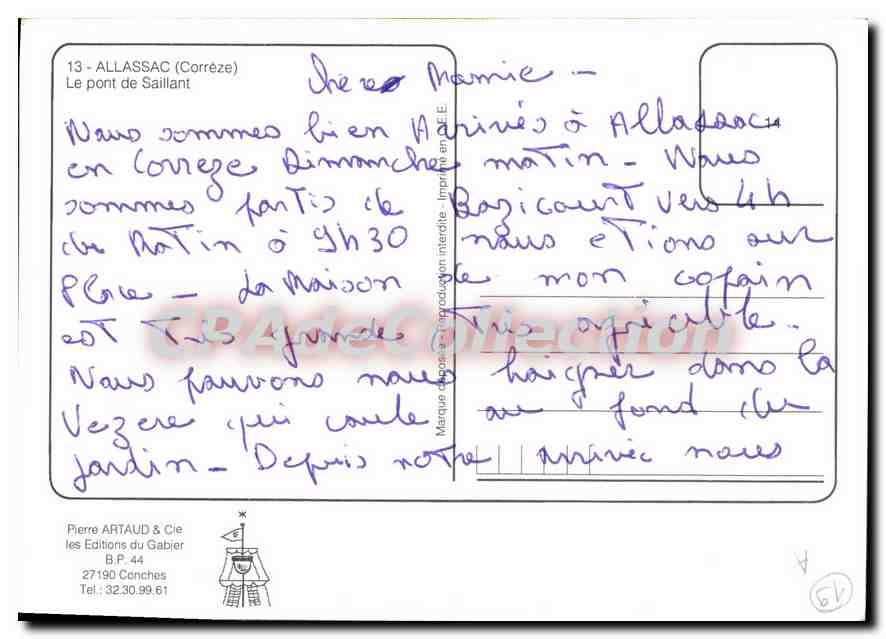 13 - ALLASSAC (Corrèze)
Le pont de Saillant
Chère Mamie -
Nous sommes bien Arrivés à Allassac
14
en Correze Dimanche matin - Nous
sommes partis de Bazicourt vers 4h
du Matin à 9h30 nous etions sur
place - La Maison de mon copain
est très grande, très agréable.
Nous pouvons nous baigner dans la
Vezere qui coule au fond du
jardin - Depuis notre arrivée nous
Marque déposée - Reproduction interdite - Imprimé en C.E.E.
CPAdeCollection
Pierre ARTAUD & Cie
les Editions du Gabier
B.P. 44
27190 Conches
Tel.: 32.30.99.61
A
19